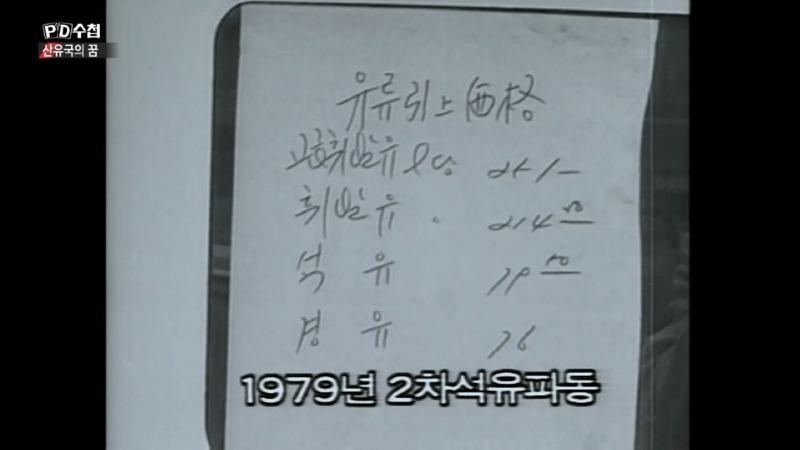 PD수첩
산유국의 꿈
유류引上価格
고급휘발유 ℓ당 251-
휘발유 214 50
석유 79 50
경유 76
1979년 2차석유파동